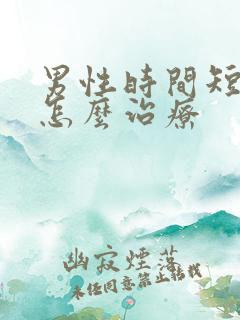 男性時間短
怎麼治療
幽寂煙落
未经同意禁止转载